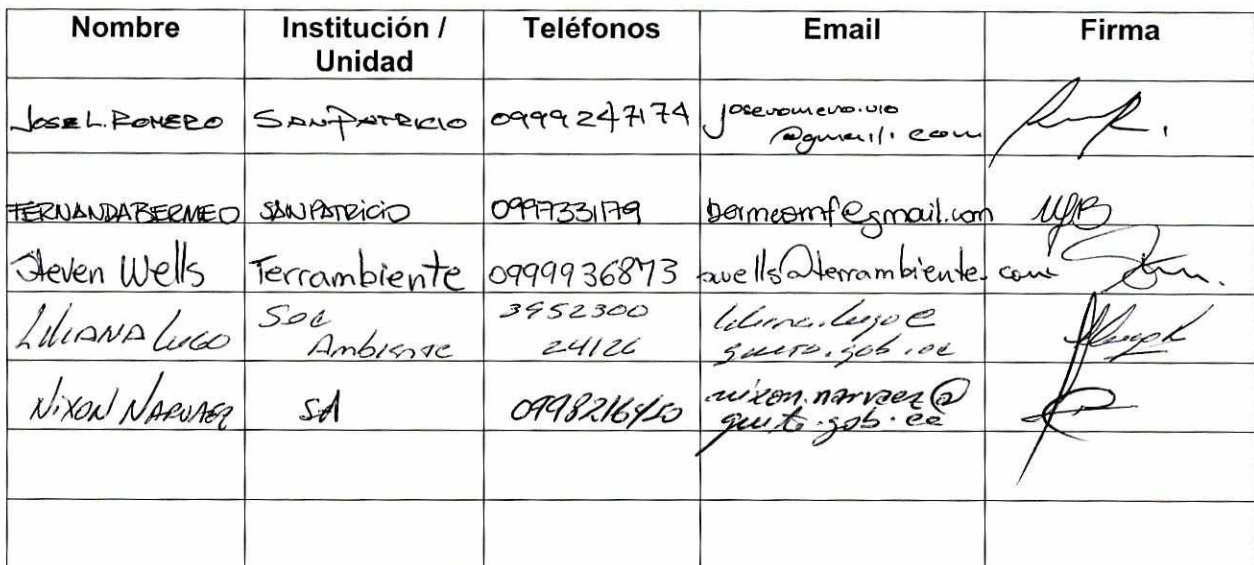 Nombre Institución / Unidad Teléfonos Email Firma
JOSE L. ROMERO SAN PATRICIO 0999247174 joseromero.uio
@gmail.com
FERNANDA BERMEO SAN PATRICIO 0997331179 bermeomf@gmail.com
Steven Wells Terrambiente 0999936873 swells@terrambiente.com
LILIANA LUGO Sec Ambiente 3952300 24126 liliana.lugo@
quito.gob.ec
NIXON NARVAEZ SA nixon.narvaez@
quito.gob.ec